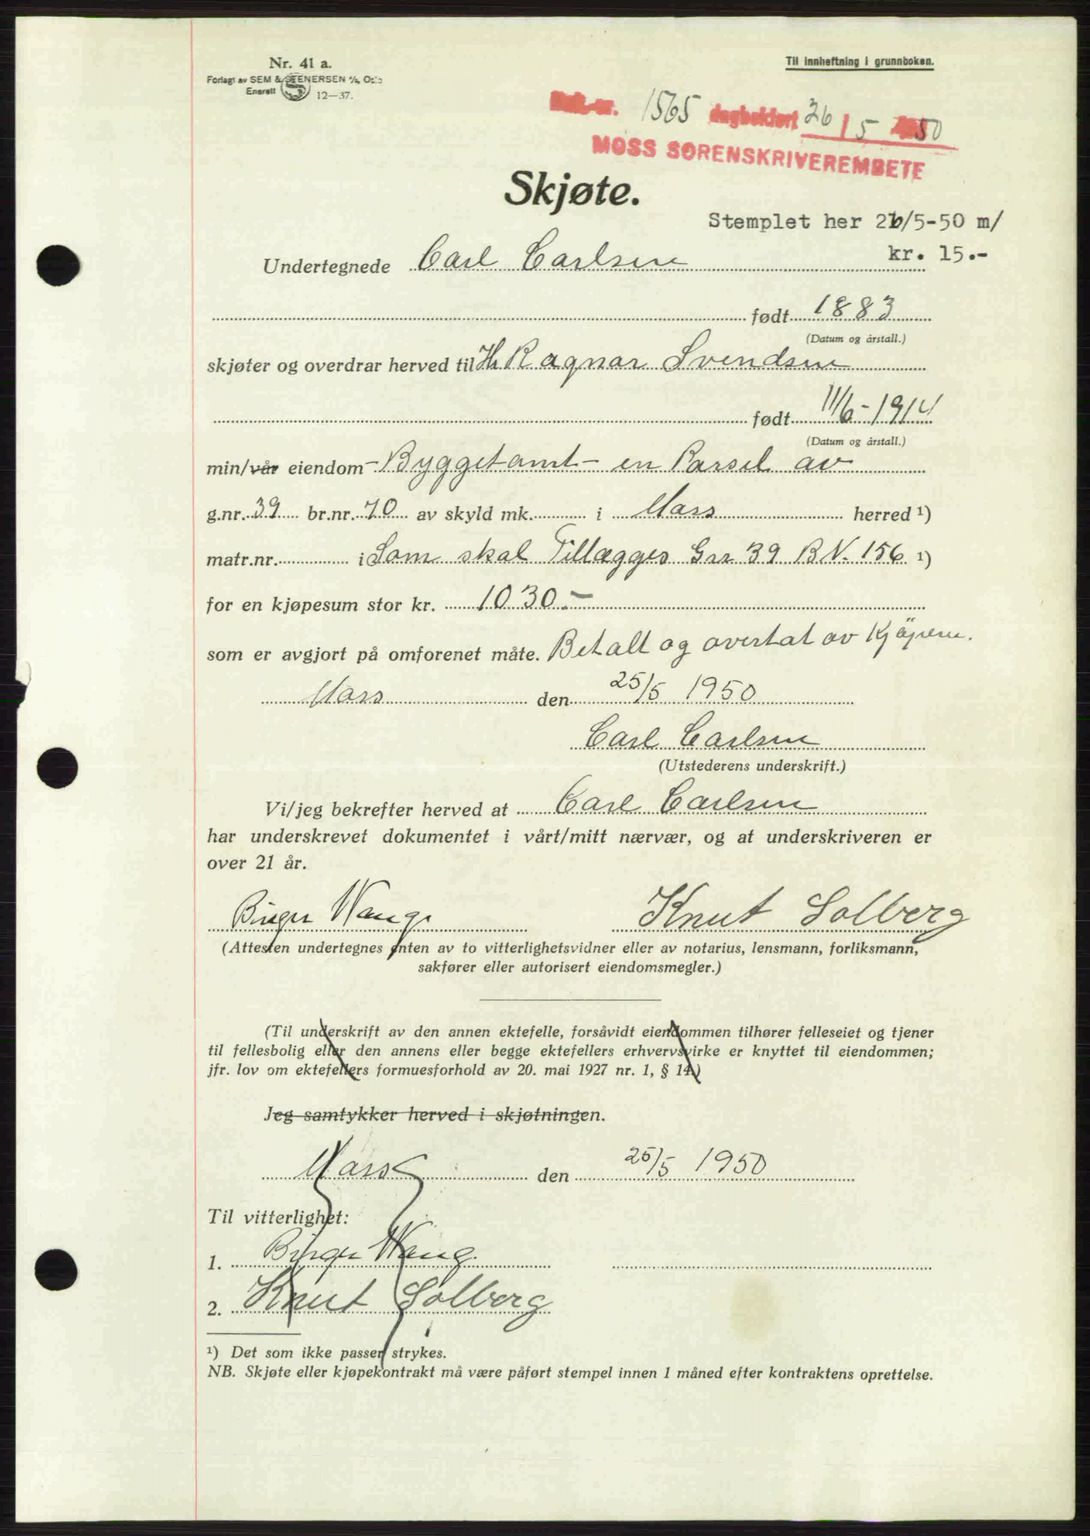 Nr. 41 a.
Til innheftning i grunnboken.
Forlagt av SEM & STENERSEN A/S, Oslo
Enerett S 12—37.
Dok.nr. 1565 dagbokført 26/5 1950
MOSS SORENSKRIVEREMBETE
Skjøte.
Stemplet her 26/5-50 m/
kr. 15.-
Undertegnede Carl Carlsen
født 1883
(Datum og årstall.)
skjøter og overdrar herved til Hr Ragnar Svendsen
født 11/6-1914
(Datum og årstall.)
min/vår eiendom - Byggetomt - en Parsel av
g.nr. 39 br.nr. 70 av skyld mk. i Moss herred ¹)
matr.nr. i Som skal Tillægges Gnr 39 B.N. 156 ¹)
for en kjøpesum stor kr. 1030.-
som er avgjort på omforenet måte. Betalt og overtat av Kjöperen.
Moss den 25/5 1950
Carl Carlsen
(Utstederens underskrift.)
Vi/jeg bekrefter herved at Carl Carlsen
har underskrevet dokumentet i vårt/mitt nærvær, og at underskriveren er
over 21 år.
Birger Wang Knut Solberg
(Attesten undertegnes enten av to vitterlighetsvidner eller av notarius, lensmann, forliksmann,
sakfører eller autorisert eiendomsmegler.)
(Til underskrift av den annen ektefelle, forsåvidt eiendommen tilhører felleseiet og tjener
til fellesbolig eller den annens eller begge ektefellers erhvervsvirke er knyttet til eiendommen;
jfr. lov om ektefellers formuesforhold av 20. mai 1927 nr. 1, § 14.)
Jeg samtykker herved i skjøtningen.
Moss den 25/5 1950
Til vitterlighet:
1. Birger Wang.
2. Knut Solberg
¹) Det som ikke passer strykes.
NB. Skjøte eller kjøpekontrakt må være påført stempel innen 1 måned efter kontraktens oprettelse.